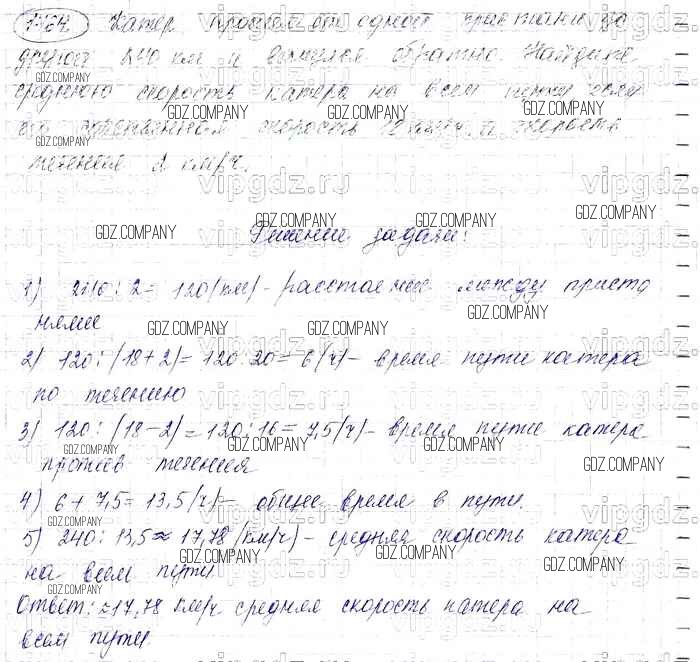 1164. Катер прошел от одной пристани до
другой 240 км и вернулся обратно. Найдите
среднюю скорость катера на всем пути если
его собственная скорость 18 км/ч, а скорость
течения 2 км/ч.
Решение задачи:
1) 240 : 2 = 120 (км) - расстояние между приста
нями
2) 120 : (18 + 2) = 120 : 20 = 6 (ч) - время пути катера
по течению
3) 120 : (18 - 2) = 120 : 16 = 7,5 (ч) - время пути катера
против течения
4) 6 + 7,5 = 13,5 (ч) - общее время в пути.
5) 240 : 13,5 ≈ 17,78 (км/ч) - средняя скорость катера
на всем пути.
Ответ: ≈ 17,78 км/ч средняя скорость катера на
всем пути.
GDZ.COMPANY
vipgdz.ru